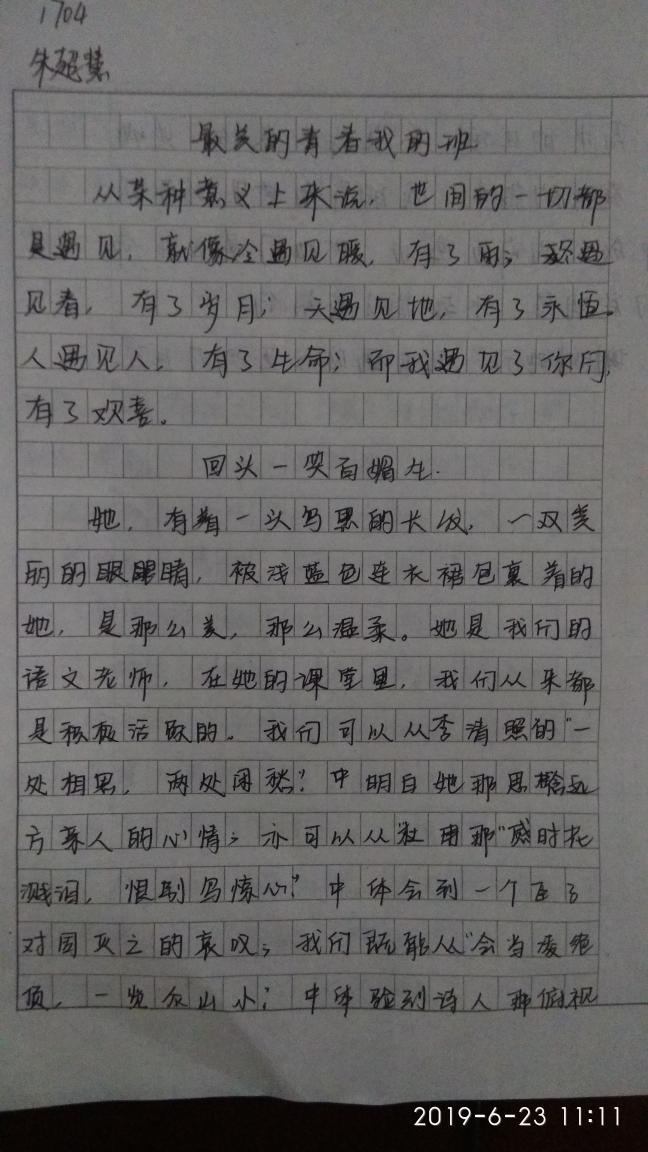 1704
朱延慧
最美的青春我的班
从某种意义上来说，世间的一切都
是遇见，就像冷遇见暖，有了雨；遇
见春，有了岁月；天遇见地，有了永恒。
人遇见人，有了生命；而我遇见了你们，
有了欢喜。
回头一笑百媚生.
她，有着一头乌黑的长发，一双美
丽的眼睛，被浅蓝色连衣裙包裹着的
她，是那么美，那么温柔。她是我们的
语文老师，在她的课堂里，我们从来都
是积极活跃的。我们可以从李清照的"一
处相思，两处闲愁"中明白她那思念远
方亲人的心情；亦可以从杜甫那"感时花
溅泪，恨别鸟惊心"中体会到一个
对国灭之的哀叹；我们既能从"会当凌绝
顶，一览众山小"中体验到诗人那俯视
2019-6-23 11:11